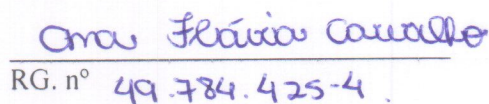 Ana Flávia Carvalho
RG. nº 49.784.425-4.